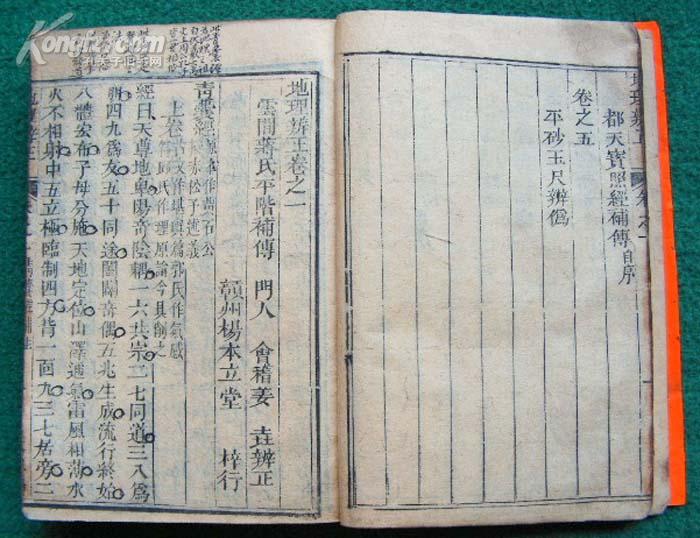 都天寶照經補傳 自序
卷之五
平砂玉尺辨僞
地理辨正卷之一
雲間蔣氏平階補傳 門人 會稽姜垚辨正
贛州楊本立堂 梓行
靑囊經 原本作黃石公 赤松子述義
上卷 古文作堪輿篇郭氏作氣感 邱氏作理原論今具削之
經曰天尊地卑陽奇陰耦一六共宗二七同道三八爲
朋四九爲友五十同途闔闢奇偶五兆生成流行終始
八體宏布子母分施天地定位山澤通氣雷風相薄水
火不相射中五立極臨制四方背一面九三七居旁二
Kongfz.com
孔夫子旧书网